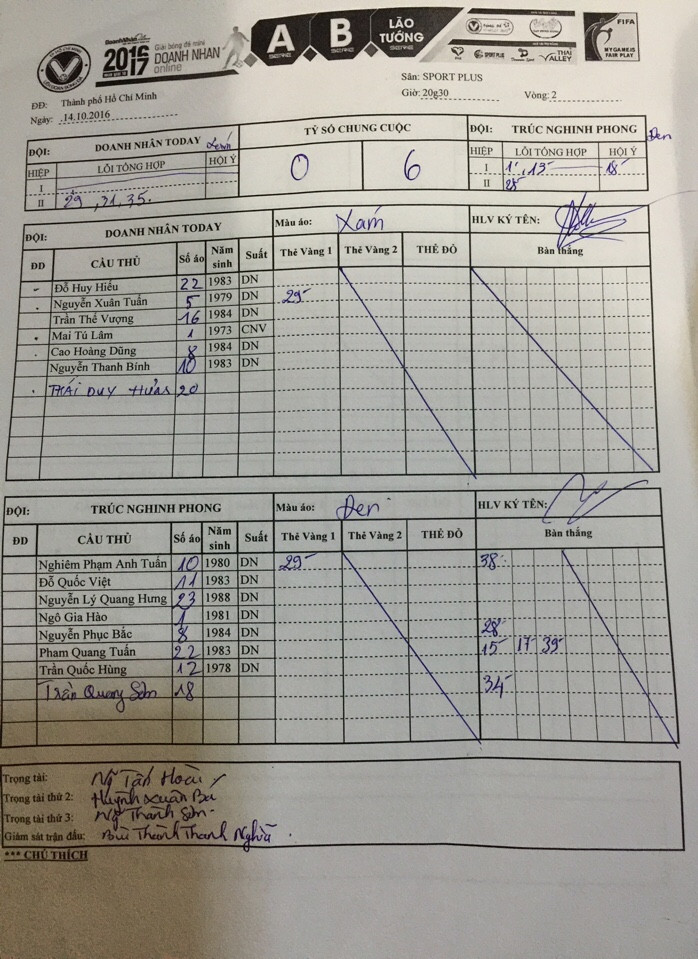 DoanhNhân
2016 2017 Giải bóng đá mini DOANH NHÂN online
A SERIE B SERIE LÃO TƯỚNG SERIE
SPORT PLUS THÁI VALLEY
FIFA
MY GAME IS FAIR PLAY
Sân: SPORT PLUS
ĐĐ: Thành phố Hồ Chí Minh Giờ: 20g30 Vòng: 2
Ngày: 14.10.2016
ĐỘI: DOANH NHÂN TODAY Xám TỶ SỐ CHUNG CUỘC ĐỘI: TRÚC NGHINH PHONG Đen
HIỆP LỖI TỔNG HỢP HỘI Ý 0 6 HIỆP LỖI TỔNG HỢP HỘI Ý
I I 1', 13' 18'
II 29, 31, 35. II 25'
ĐỘI: DOANH NHÂN TODAY Màu áo: Xám HLV KÝ TÊN:
ĐD CẦU THỦ Số áo Năm sinh Suất Thẻ Vàng 1 Thẻ Vàng 2 THẺ ĐỎ Bàn thắng
Đỗ Huy Hiếu 22 1983 DN
Nguyễn Xuân Tuấn 5 1979 DN 29'
Trần Thế Vượng 16 1984 DN
Mai Tú Lâm 1 1973 CNV
Cao Hoàng Dũng 8 1984 DN
Nguyễn Thanh Bính 10 1983 DN
THÁI DUY 20
ĐỘI: TRÚC NGHINH PHONG Màu áo: Đen HLV KÝ TÊN:
ĐD CẦU THỦ Số áo Năm sinh Suất Thẻ Vàng 1 Thẻ Vàng 2 THẺ ĐỎ Bàn thắng
Nghiêm Phạm Anh Tuấn 10 1980 DN 29' 38'
Đỗ Quốc Việt 11 1983 DN
Nguyễn Lý Quang Hưng 23 1988 DN
Ngô Gia Hào 1 1981 DN
Nguyễn Phục Bắc 8 1984 DN 28'
Pham Quang Tuấn 22 1983 DN 15' 17' 39'
Trần Quốc Hùng 12 1978 DN
Trần Quang Sơn 18 34'
Trọng tài: Ng Tấn Hoài
Trọng tài thứ 2: Huỳnh Xuân Ba
Trọng tài thứ 3: Ng Thanh Sơn
Giám sát trận đấu: Bùi Thành Thanh Nghĩa
*** CHÚ THÍCH